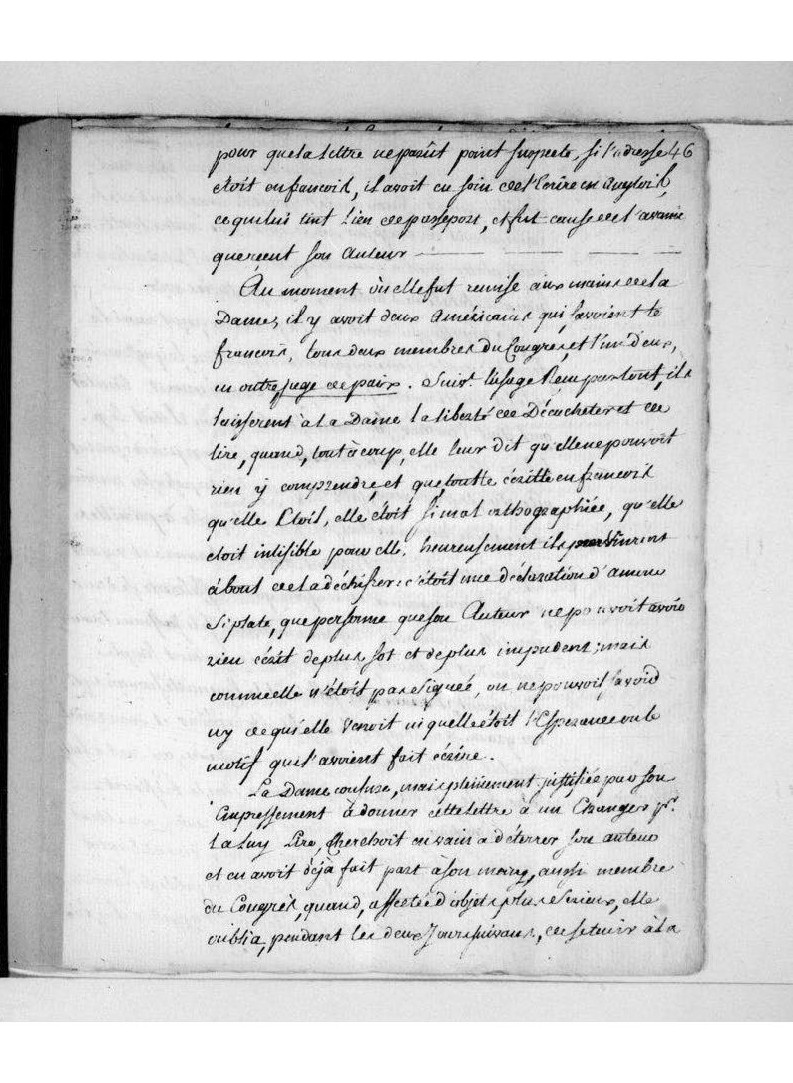 pour que la lettre ne parut point suspecte, si l'adresse 46
etoit en francois, il avoit eu soin de l'Ecrire en Anglois,
ce qui lui tint lieu de passeport, et fut cause de l'avanie
que reçut son Auteur
Au moment où elle fut remise aux mains de la
Dame, il y avoit deux Américains qui savoient le
francois, tous deux membres du Congres, et l'un d'eux,
en outre, juge de paix. Suivt. l'usage Reçu partout, ils
laisserent à la Dame la liberté de Décacheter et de
lire, quand, tout à coup, elle leur dit qu'elle ne pouvoit
rien y comprendre, et que, toutte écritte en francois
qu'elle Etoit, elle étoit si mal orthographiée, qu'elle
etoit inlisible pour elle. heureusement ils parvinrent
à bout de la déchifrer: c'étoit une déclaration d'amour
si plate, que personne que son Auteur ne pouvoit avoir
rien écrit de plus sot et de plus impudent; mais
comme elle n'étoit pas signée, on ne pouvoit savoir
ny de qui elle venoit ni quelle étoit l'Esperance ou le
motif qui l'avoient fait écrire.
La Dame confuse, mais pleinement justifiée par son
Empressement à donner cette lettre à un Etranger pr.
la luy Lire, Cherchoit en vain a déterrer son auteur
et en avoit déjà fait part à son mary, aussi membre
du Congrès, quand, affectée d'objets plus serieux, elle
oublia, pendant les deux Jours suivans, de se tenir à la